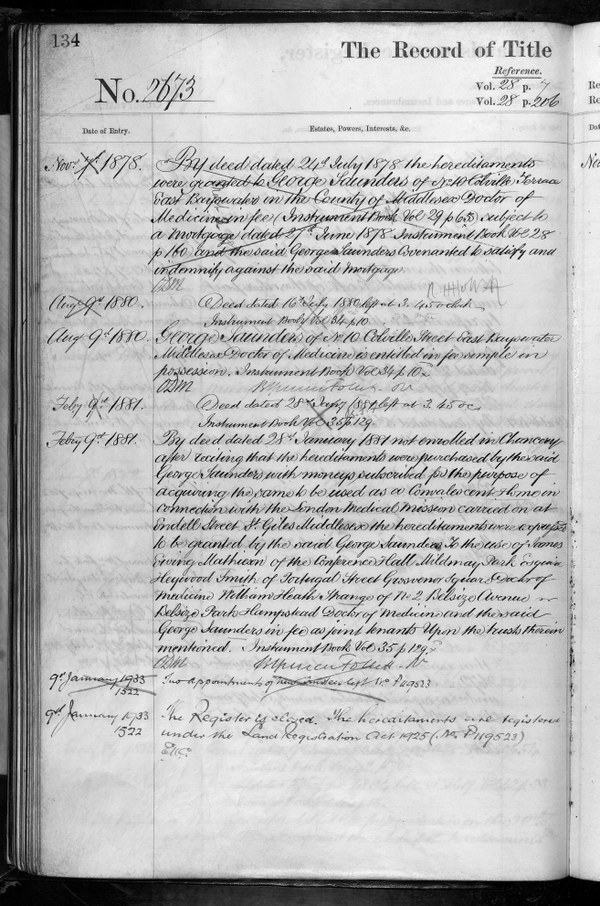 134
The Record of Title
Reference.
No. 2673
Vol. 28 p. 7
Vol. 28 p. 206
Date of Entry.
Estates, Powers, Interests, &c.
Novr 7th 1878.
By deed dated 24th July 1878 the hereditaments
were granted to George Saunders of No 10 Colville Terrace
East Bayswater in the County of Middlesex Doctor of
Medicine in fee (Instrument Book Vol 29 p 63) subject to
a Mortgage dated 27th June 1878 Instrument Book Vol 28
p 160 and the said George Saunders Covenanted to satisfy and
indemnify against the said mortgage.
ODM
Augt 9th 1880.
Deed dated 16th July 1880 left at 3.45 oclock
Instrument Book Vol 34 p 10
Augt 9th 1880.
George Saunders of No 10 Colville Street East Bayswater
Middlesex Doctor of Medicine is entitled in fee simple in
possession. Instrument Book Vol 34 p 10
ODM
Feby 9th 1881.
Deed dated 28th 1881 left at 3.45 oc
Instrument Book Vol 35 p 129
Febry 9th 1881.
By deed dated 28th January 1881 not enrolled in Chancery
after reciting that the hereditaments were purchased by the said
George Saunders with moneys subscribed for the purpose of
acquiring the same to be used as a Convalescent Home in
connection with the London Medical Mission carried on at
Endell Street St Giles Middlesex the hereditaments were expressed
to be granted by the said George Saunders To the use of James
Ewing Mathieson of the Conference Hall Mildmay Park Esquire
Heywood Smith of Portugal Street Grosvenor Square Doctor of
medicine William Heath Strange of No 2 Belsize Avenue
Belsize Park Hampstead Doctor of Medicine and the said
George Saunders in fee as joint tenants Upon the trusts therein
mentioned. Instrument Book Vol 35 p 129
ODM
9th January 1933
1522
Two appointments of new trustees left No P119523
9th January 1933
1522
The Register is closed. The hereditaments are registered
under the Land Registration Act 1925 (No P119523)